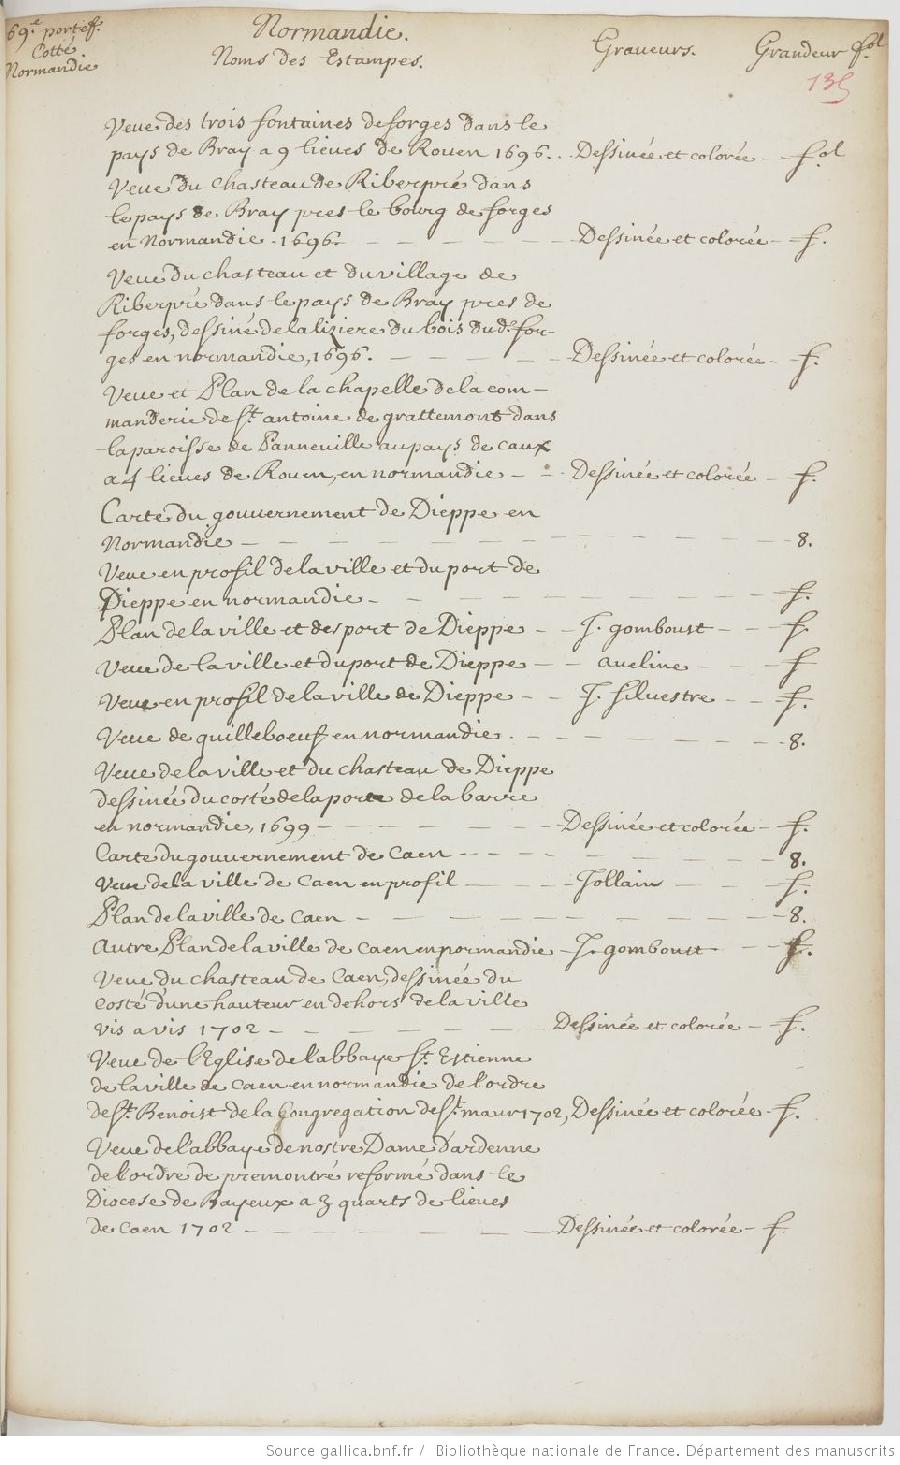 69.e portef. Normandie.
Cotté Noms des Estampes. Graveurs. Grandeur fol
Normandie
135
Veue des trois fontaines de forges dans le
pays de Bray a 9 lieues de Rouen 1696. Dessinée et colorée fol
Veue du chasteau de Riberpré dans
le pays de Bray pres le bourg de forges
en Normandie. 1696. Dessinée et colorée f.
Veue du chasteau et du village de
Riberpré dans le pays de Bray pres de
forges, dessiné de la liziere du bois dud. for-
ges en normandie, 1696. Dessinée et colorée f.
Veue et Plan de la chapelle de la com-
manderie de St. antoine de grattemont dans
la paroisse de Panneville au pays de caux
a 4 lieues de Rouen, en normandie Dessinée et colorée f.
Carte du gouvernement de Dieppe en
Normandie 8.
Veue en profil de la ville et du port de
Dieppe en normandie f.
Plan de la ville et des port de Dieppe J. gomboust f.
Veue de la ville et du port de Dieppe aveline f
Veue en profil de la ville de Dieppe J. silvestre f.
Veue de quilleboeuf en normandie. 8.
Veue de la ville et du chasteau de Dieppe
dessinée du costé de la porte de la barre
en normandie, 1699 Dessinée et colorée f.
Carte du gouvernement de Caen 8.
Veue de la ville de Caen en profil Jollain f.
Plan de la ville de Caen 8.
Autre Plan de la ville de Caen en normandie J. gomboust f.
Veue du chasteau de Caen, dessinée du
costé d'une hauteur en dehors de la ville
vis a vis 1702 Dessinée et colorée f.
Veue de l'Eglise de l'abbaye St. Estienne
de la ville de Caen en normandie de l'ordre
de St. Benoist de la Congregation de St. maur 1702, Dessinée et colorée f.
Veue de l'abbaye de nostre Dame d'ardenne
de l'ordre de premontré reformé dans le
Diocese de Bayeux a 3 quarts de lieues
de Caen 1702 Dessinée et colorée f
Source gallica.bnf.fr / Bibliothèque nationale de France. Département des manuscrits